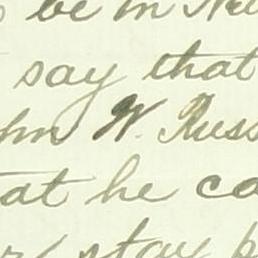 be in New
say that
hn W. Russ
at he ca
stay